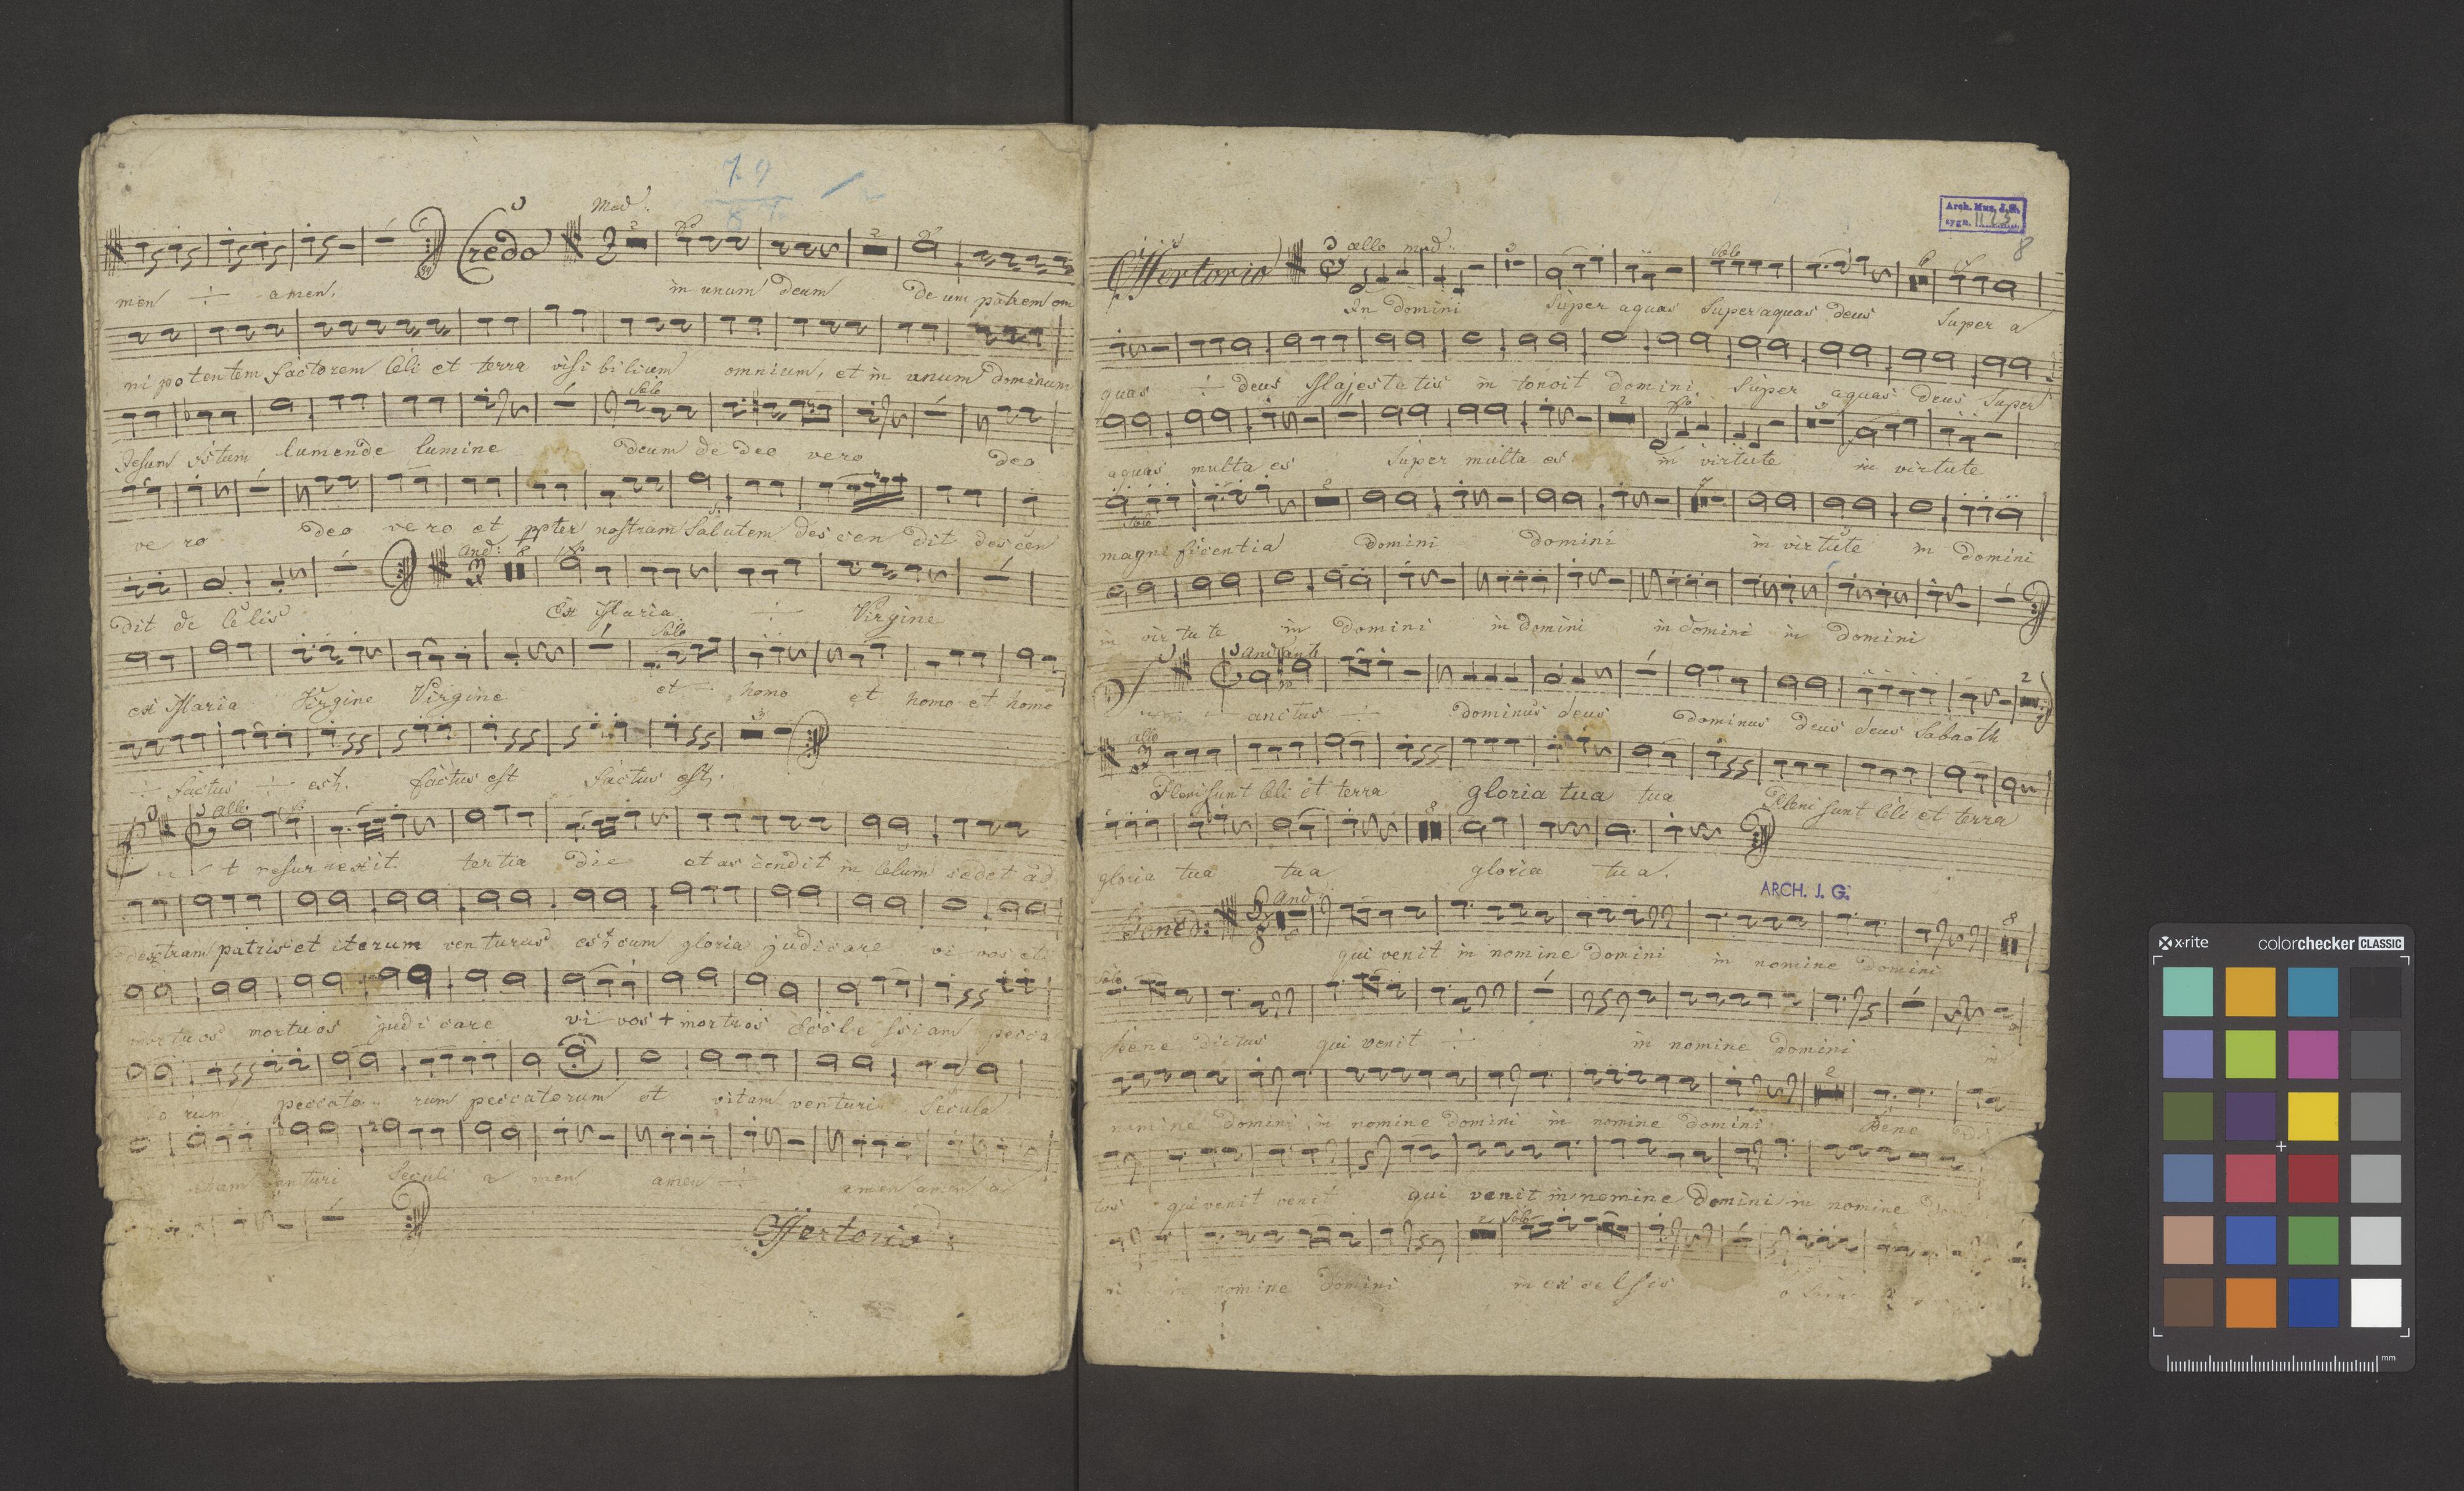 7. 9
Mod:
Credo
men ÷ amen. in unum deum deum patrem om
ni potentem factorem celi et terra visi bilium omnium, et in unum Dominum
Solo
Jesum istum lumen de lumine deum de deo vero deo
vero deo vero et ppter nostram Salutem des cen dit descen
And: 8
dit de celis Ex Maria ÷ Virgine
Solo
ex Maria Virgine Virgine et ÷ homo et homo et homo
÷ factus ÷ est. factus est factus est.
allo
Et resurrexit tertia die et as cendit in celum sedet ad
dextram patris et iterum venturus est cum gloria judicare vi vos et
mortuos mortuos judi care vi vos + mortuos Eccle ssiam pecca
to rum peccato rum peccatorum et vitam venturi Secula
venturi Seculi a men amen ÷ amen amen a
Offertorio
Arch. Mus. J. G.
sygn. II. 23
8
Offertorio allo mod:
Solo
In domini super aquas super aquas deus super a
quas ÷ deus Majestatis in tonoit domini super aquas deus super
aquas multa es super multa es in virtute in virtute
Solo
magni ficentia Domini domini in virtute in Domini
in vir tu te in Domini in domini in domini in domini
Andante
÷ anctus ÷ dominus deus dominus deus deus Sabaoth
allo
Pleni sunt celi et terra gloria tua tua Pleni sunt celi et terra
gloria tua tua gloria tua.
ARCH. J. G.
Bened: And
qui venit in nomine Domini in nomine Domini
Solo
Bene dictus qui venit ÷ in nomine Domini in
nomine domini in nomine domini in nomine domini Bene dic
tus qui venit venit qui venit in nomine Domini in nomine Domi
Solo
ni in nomine Domini in ex celsis
x-rite colorchecker CLASSIC
mm